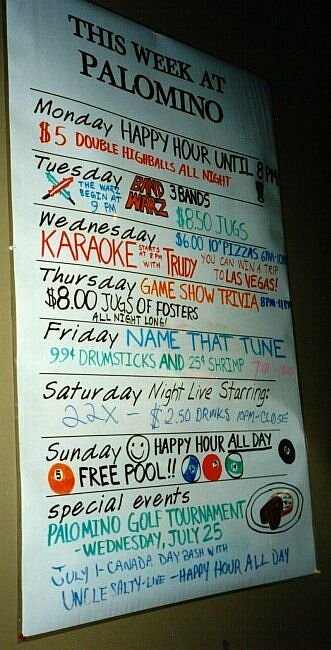 THIS WEEK AT
PALOMINO
Monday HAPPY HOUR UNTIL 8PM
$5 DOUBLE HIGHBALLS ALL NIGHT
Tuesday THE WARZ BEGIN AT 9 PM BAND WARZ 3 BANDS
$8.50 JUGS
Wednesday $6.00 10" PIZZAS 6PM-10PM
KARAOKE STARTS AT 8PM WITH TRUDY YOU CAN WIN A TRIP TO LAS VEGAS!
Thursday GAME SHOW TRIVIA 8PM-11PM
$8.00 JUGS OF FOSTERS
ALL NIGHT LONG!
Friday NAME THAT TUNE
99¢ DRUMSTICKS AND 25¢ SHRIMP
Saturday Night Live Starring:
22X - $2.50 DRINKS 10PM-CLOSE
Sunday HAPPY HOUR ALL DAY
FREE POOL!!
special events
PALOMINO GOLF TOURNAMENT
-WEDNESDAY, JULY 25
JULY 1-CANADA DAY BASH WITH
UNCLE SALTY-LIVE-HAPPY HOUR ALL DAY